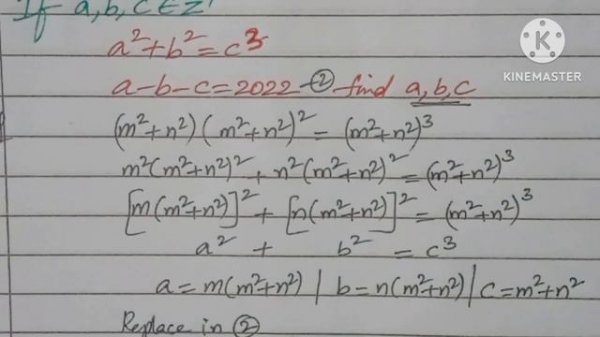 If a,b,c ∈ Z⁺
a²+b²=c³
a-b-c=2022-② find a,b,c
(m²+n²)(m²+n²)²=(m²+n²)³
m²(m²+n²)²+n²(m²+n²)²=(m²+n²)³
[m(m²+n²)]²+[n(m²+n²)]²=(m²+n²)³
a² + b² = c³
a=m(m²+n²) | b=n(m²+n²) | c=m²+n²
Replace in ②
K
KINEMASTER